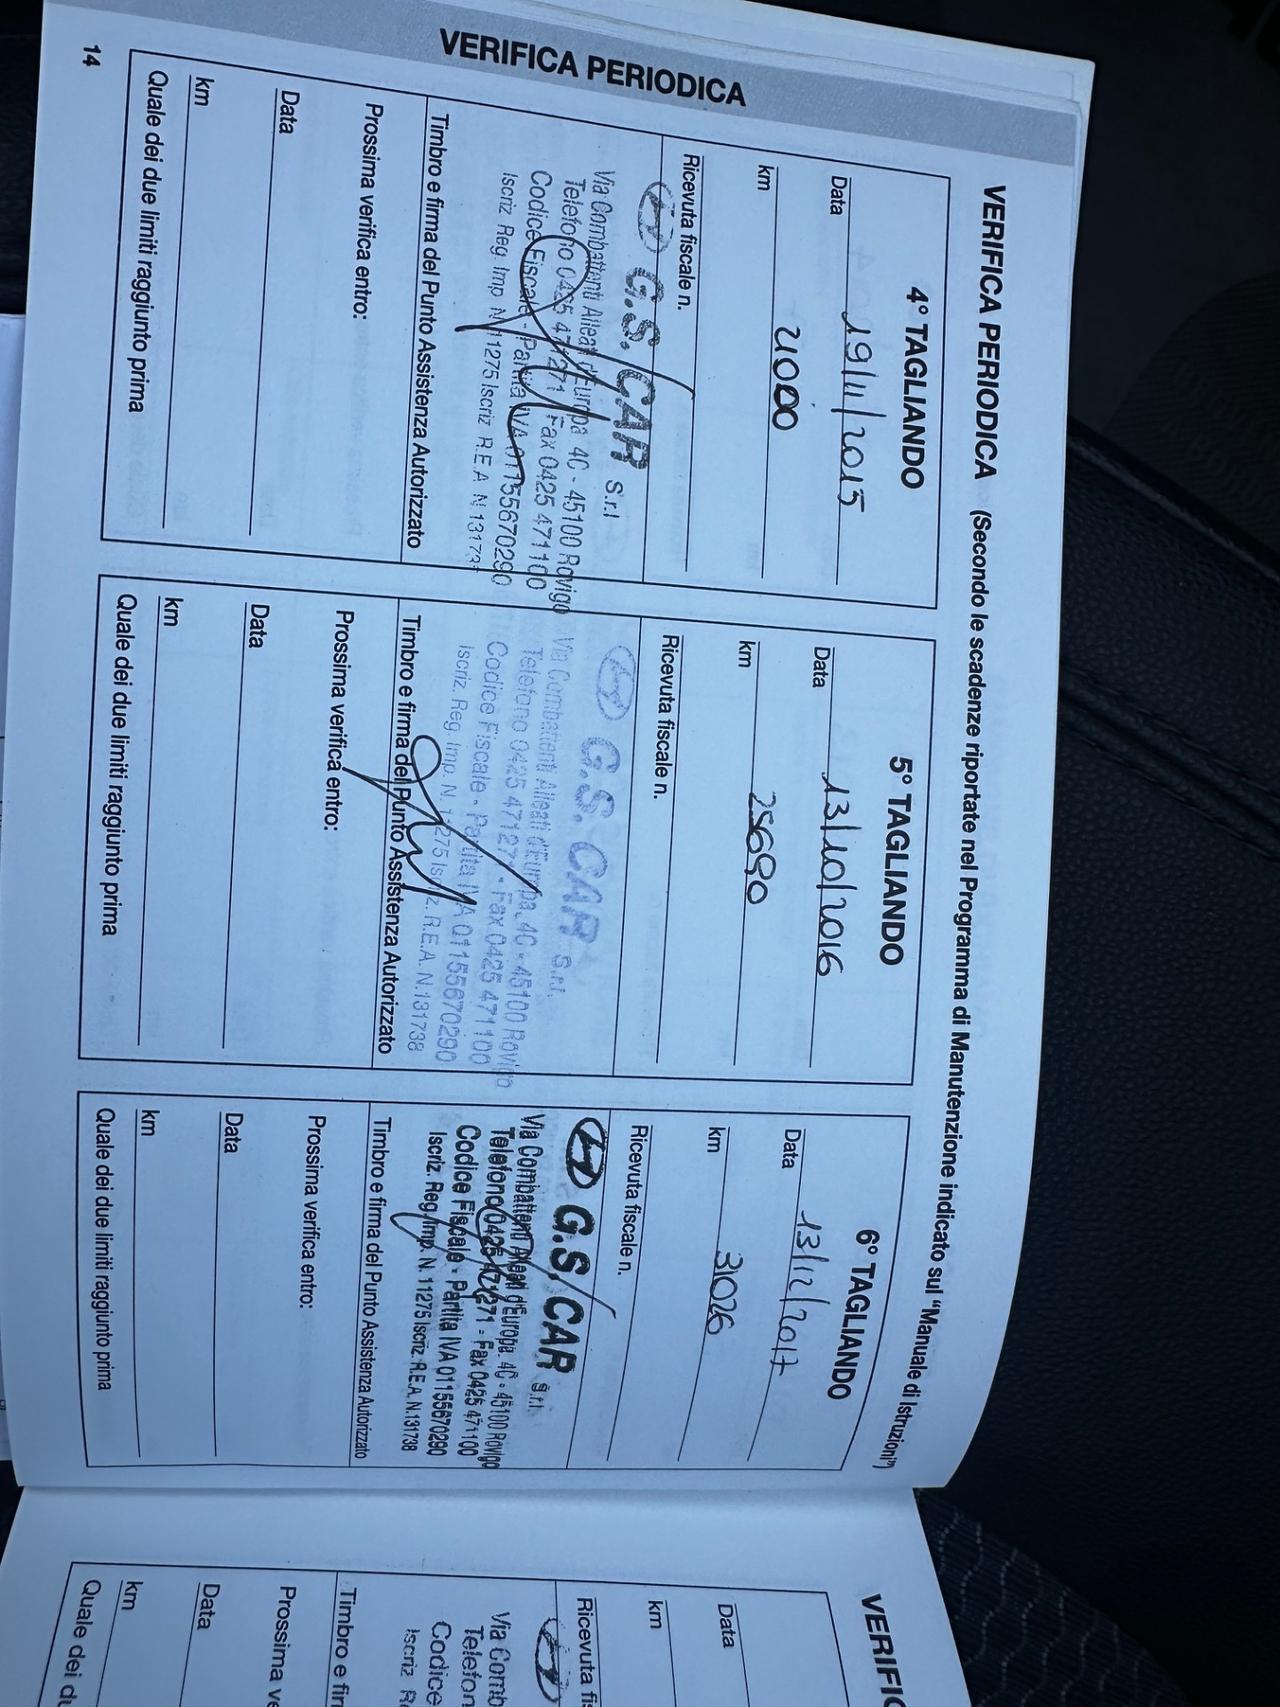 VERIFICA PERIODICA
VERIFICA PERIODICA (Secondo le scadenze riportate nel Programma di Manutenzione indicato sul "Manuale di Istruzioni")
4° TAGLIANDO
Data 19/11/2015
km 21000
Ricevuta fiscale n.
G.S. CAR S.r.l
Via Combattenti Alleati d'Europa 4C - 45100 Rovigo
Telefono 0425 471271 Fax 0425 471100
Codice Fiscale - Partita IVA 01155670290
Iscriz Reg. Imp N 11275 Iscriz R.E.A N 13173
Timbro e firma del Punto Assistenza Autorizzato
Prossima verifica entro:
Data
km
Quale dei due limiti raggiunto prima
5° TAGLIANDO
Data 13/10/2016
km 25690
Ricevuta fiscale n.
G.S. CAR S.r.l.
Via Combattenti Alleati d'Europa, 4C - 45100 Rovigo
Telefono 0425 471271 - Fax 0425 471100
Codice Fiscale - Partita IVA 01155670290
Iscriz. Reg. Imp. N. 11275 Iscriz. R.E.A. N.131738
Timbro e firma del Punto Assistenza Autorizzato
Prossima verifica entro:
Data
km
Quale dei due limiti raggiunto prima
6° TAGLIANDO
Data 13/12/2017
km 31026
Ricevuta fiscale n.
G.S. CAR s.r.l.
Via Combattenti Alleati d'Europa. 4C - 45100 Rovigo
Telefono 0425 471271 - Fax 0425 471100
Codice Fiscale - Partita IVA 01155670290
Iscriz. Reg. Imp. N. 11275 Iscriz. R.E.A. N.131738
Timbro e firma del Punto Assistenza Autorizzato
Prossima verifica entro:
Data
km
Quale dei due limiti raggiunto prima
14
VERIFIC
Data
km
Ricevuta fi
Via Comb
Telefon
Codice
Iscriz R
Timbro e fir
Prossima ve
Data
km
Quale dei du